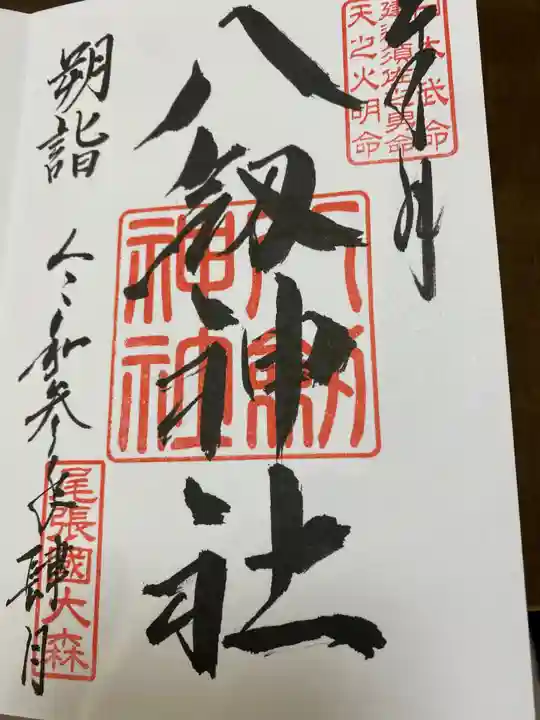 日本武命
建速須佐之男命
天之火明命
八劔神社
八劔
神社
朔詣 令和参年肆月
尾張國大森